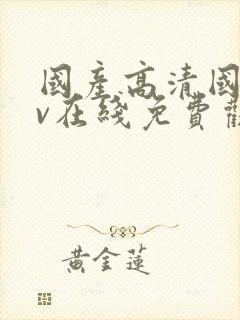 國產高清國
v在綫免費觀
黃金蓮